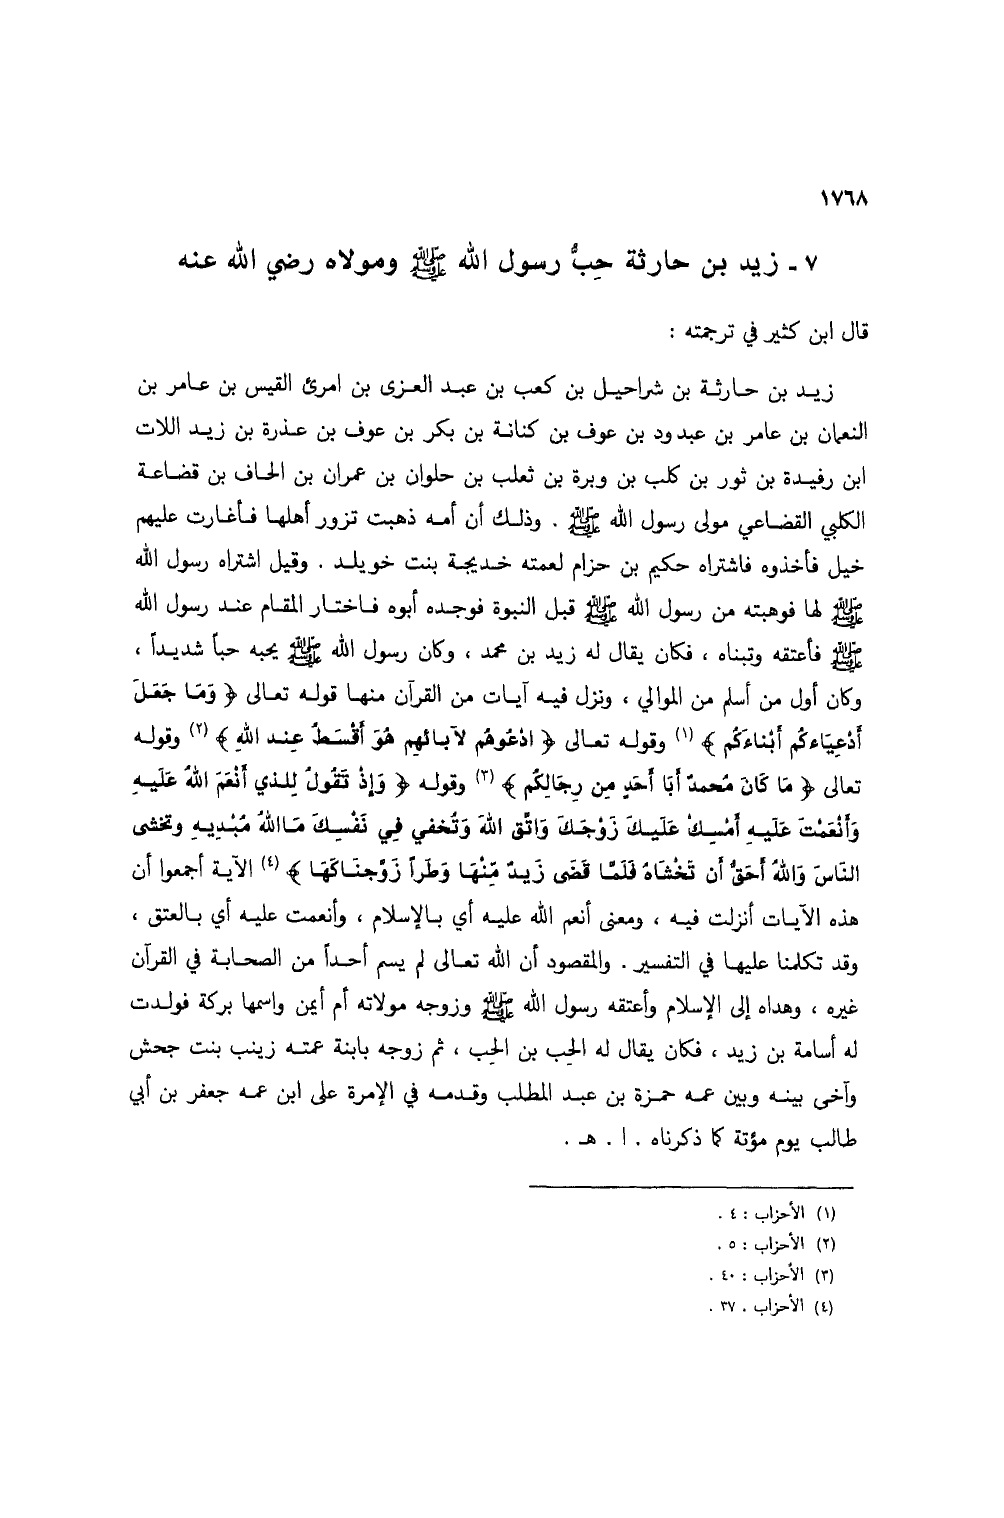 ١٧٦٨
٧ ـ زيد بن حارثة حِبُّ رسول الله ﷺ ومولاه رضي الله عنه
قال ابن كثير في ترجمته :
زيد بن حارثة بن شراحيل بن كعب بن عبد العزى بن امرئ القيس بن عامر بن
النعمان بن عامر بن عبدود بن عوف بن كنانة بن بكر بن عوف بن عذرة بن زيد اللات
ابن رفيدة بن ثور بن كلب بن وبرة بن ثعلب بن حلوان بن عمران بن الحاف بن قضاعة
الكلبي القضاعي مولى رسول الله ﷺ . وذلك أن أمه ذهبت تزور أهلها فأغارت عليهم
خيل فأخذوه فاشتراه حكيم بن حزام لعمته خديجة بنت خويلد . وقيل اشتراه رسول الله
ﷺ لها فوهبته من رسول الله ﷺ قبل النبوة فوجده أبوه فاختار المقام عند رسول الله
ﷺ فأعتقه وتبناه ، فكان يقال له زيد بن محمد ، وكان رسول الله ﷺ يحبه حباً شديداً ،
وكان أول من أسلم من الموالي ، ونزل فيه آيات من القرآن منها قوله تعالى ﴿ وَمَا جَعَلَ
أَدْعِيَاءكُم أَبْناءَكُم ﴾ (١) وقوله تعالى ﴿ ادْعُوهُم لآبائهِم هُوَ أَقْسَطُ عِند اللهِ ﴾ (٢) وقوله
تعالى ﴿ مَا كَانَ مُحمدٌ أبَا أَحَدٍ مِن رِجَالِكُم ﴾ (٣) وقوله ﴿ وَإذْ تَقُولُ لِلذي أَنْعَمَ اللهُ عَلَيهِ
وَأَنْعَمْتَ عَلَيهِ أَمْسِكْ عَلَيكَ زَوْجَكَ وَاتَّق اللهَ وَتُخفي فِي نَفْسِكَ مَااللهُ مُبْدِيهِ وتخشى
النَاسَ وَاللهُ أَحَقُّ أن تَخْشَاهُ فَلَمَّا قَضَى زَيدٌ مِّنْهَا وَطَراً زَوَّجنَاكَهَا ﴾ (٤) الآية أجمعوا أن
هذه الآيات أنزلت فيه ، ومعنى أنعم الله عليه أي بالإسلام ، وأنعمت عليه أي بالعتق ،
وقد تكلمنا عليها في التفسير . والمقصود أن الله تعالى لم يسم أحداً من الصحابة في القرآن
غيره ، وهداه إلى الإسلام وأعتقه رسول الله ﷺ وزوجه مولاته أم أيمن واسمها بركة فولدت
له أسامة بن زيد ، فكان يقال له الحِب بن الحِب ، ثم زوجه بابنة عمته زينب بنت جحش
وآخى بينه وبين عمه حمزة بن عبد المطلب وقدمه في الإمرة على ابن عمه جعفر بن أبي
طالب يوم مؤتة كما ذكرناه . ا . هـ .
(١) الأحزاب : ٤ .
(٢) الأحزاب : ٥ .
(٣) الأحزاب : ٤٠ .
(٤) الأحزاب . ٣٧ .